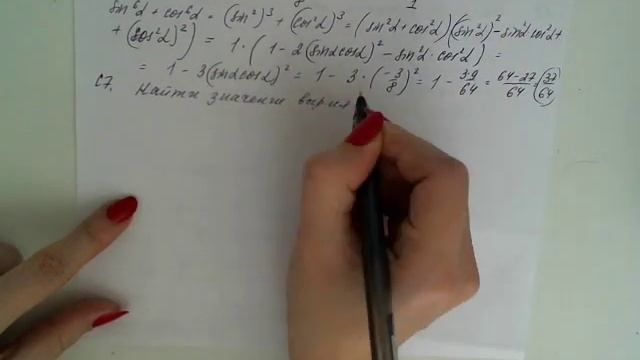 sin⁶α + cos⁶α = (sin²)³ + (cos²α)³ = (sin²α + cos²α)((sin²α)² - sin²α cos²α +
+ (cos²α)²) = 1 · (1 - 2(sinα cosα)² - sin²α · cos²α) =
= 1 - 3(sinα cosα)² = 1 - 3 · (-3/8)² = 1 - 3·9/64 = (64-27)/64 = 37/64
С7. Найти значение выраж